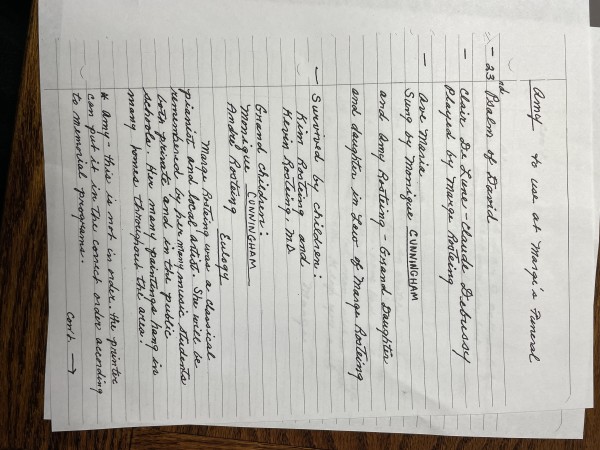 Amy to use at Marge's Funeral
- 23rd Psalm of David
- Clair De Lune - Claude Debussy
Played by Marge Rosteing
- Ave Maria
Sung by Monique CUNNINGHAM
and Amy Rosteing - Grand Daughter
and daughter in Law of Marge Rosteing
- Survived by children:
Kim Rosteing and
Kevin Rosteing - MD.
Grand children:
Monique CUNNINGHAM
André Rosteing
Eulogy
Marge Rosteing was a classical
pianist and local artist. She will be
remembered by her many music students
both private and in the public
schools. Her many paintings hang in
many homes throughout the area.
# Amy - this is not in order. The printer
can put it in the correct order according
to memorial programs.
Cont. →